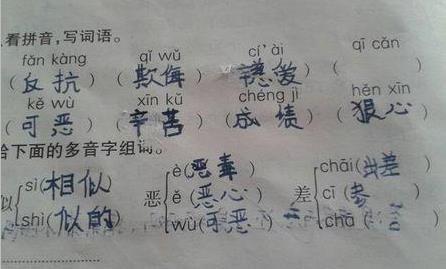 看拼音,写词语。
fǎn kàng qī wǔ cí'ài qī cǎn
(反抗) (欺侮) (慈爱) (
kě wù xīn kǔ chéng jì hěn xīn
(可恶) (辛苦) (成绩) (狠心)
给下面的多音字组词。
似 sì(相似) shì(似的)
恶 è(恶毒) ě(恶心) wù(可恶)
差 chāi(出差) cī(参 chā(